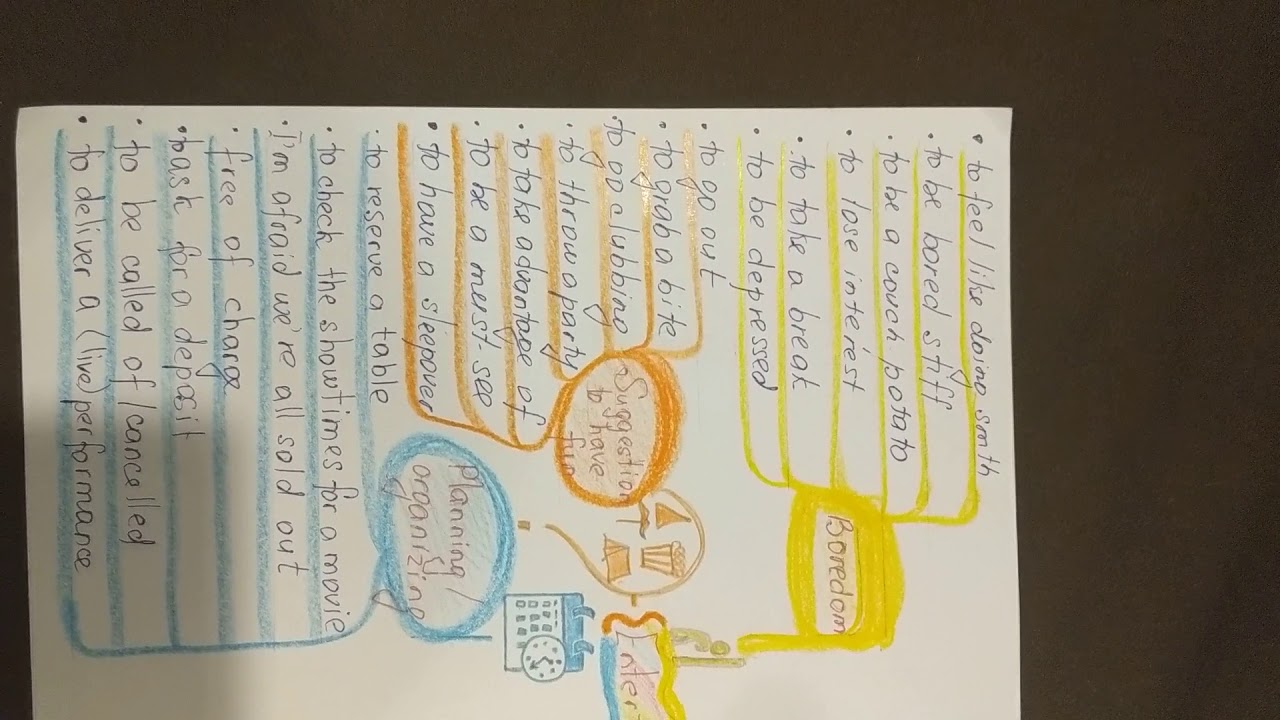 • to feel like doing smth
• to be bored stiff
• to be a couch potato
• to lose interest
• to take a break
• to be depressed
Boredom
• to go out
• to grab a bite
• to go clubbing
• to throw a party
• to take advantage of
• to be a must see
• to have a sleepover
Suggestion
to have
fun
• to reserve a table
• to check the showtimes for a movie
• I'm afraid we're all sold out
• free of charge
• to ask for a deposit
• to be called of/cancelled
• to deliver a (live) performance
planning/
organizing
Enter